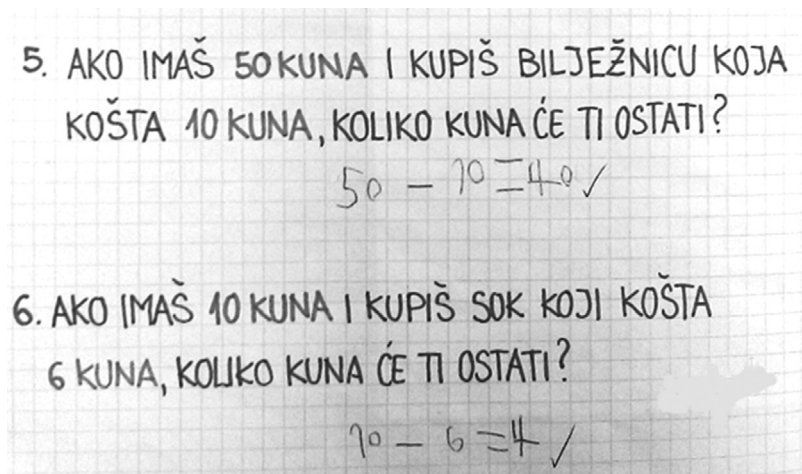 5. AKO IMAŠ 50 KUNA I KUPIŠ BILJEŽNICU KOJA
KOŠTA 10 KUNA, KOLIKO KUNA ĆE TI OSTATI?
50 - 10 = 40 ✓
6. AKO IMAŠ 10 KUNA I KUPIŠ SOK KOJI KOŠTA
6 KUNA, KOLIKO KUNA ĆE TI OSTATI?
10 - 6 = 4 ✓